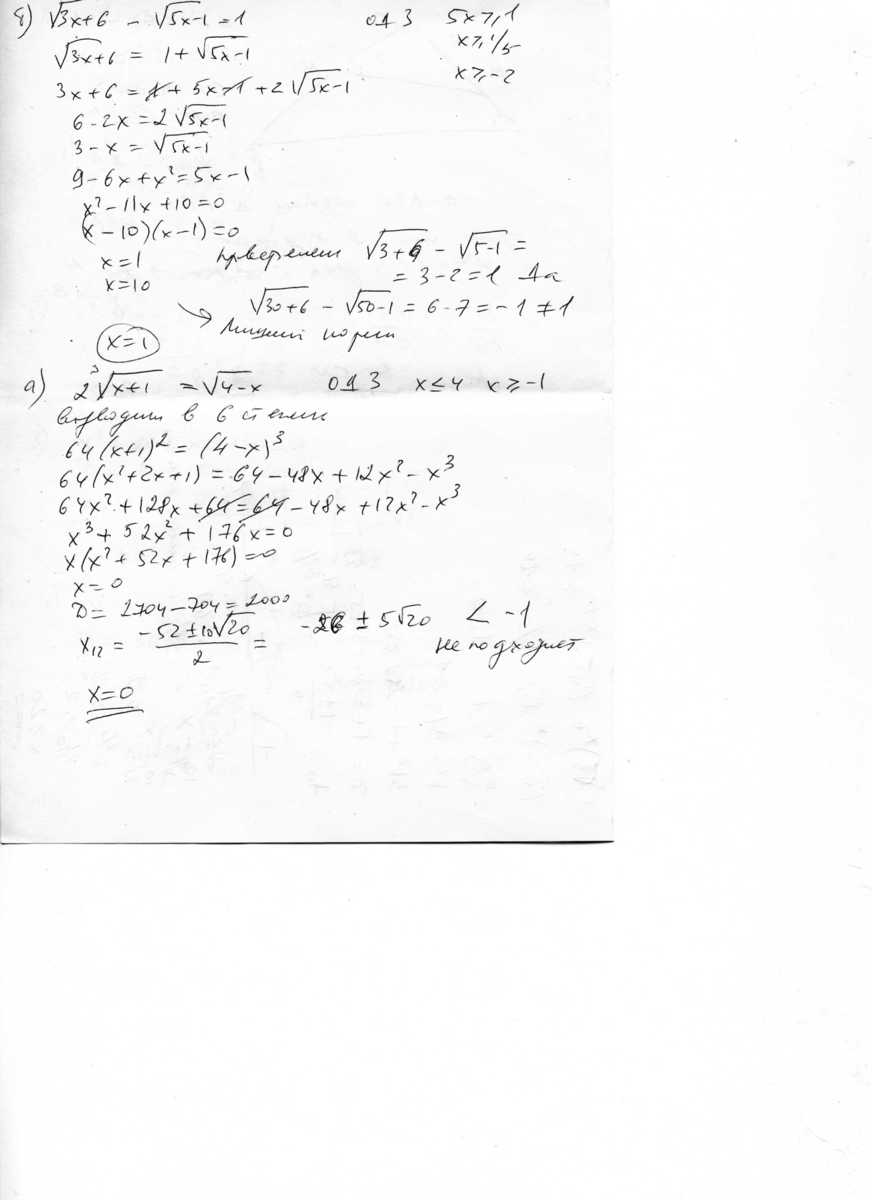 б) √3x+6 - √5x-1 = 1 ОДЗ 5x ≥ 1
√3x+6 = 1 + √5x-1 x ≥ 1/5
3x+6 = 1 + 5x - 1 + 2√5x-1 x ≥ -2
6 - 2x = 2√5x-1
3 - x = √5x-1
9 - 6x + x² = 5x - 1
x² - 11x + 10 = 0
(x - 10)(x - 1) = 0
x = 1 проверяем √3+6 - √5-1 =
x = 10 = 3 - 2 = 1 Да
√30+6 - √50-1 = 6 - 7 = -1 ≠ 1
x = 1 Лишний корень
а) 2∛x+1 = √4-x ОДЗ x ≤ 4 x ≥ -1
возводим в 6 степень
64(x+1)² = (4-x)³
64(x²+2x+1) = 64 - 48x + 12x² - x³
64x² + 128x + 64 = 64 - 48x + 12x² - x³
x³ + 52x² + 176x = 0
x(x² + 52x + 176) = 0
x = 0
D = 2704 - 704 = 2000
x₁₂ = -52 ± 10√20 / 2 = -26 ± 5√20 < -1
не подходит
x = 0